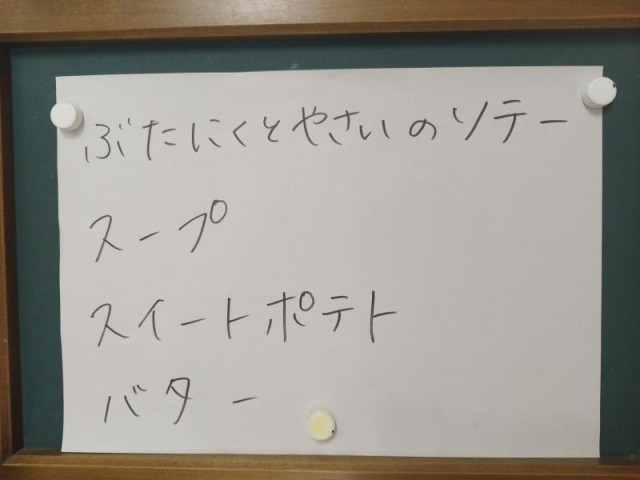 ぶたにくとやさいのソテー
スープ
スイートポテト
バター